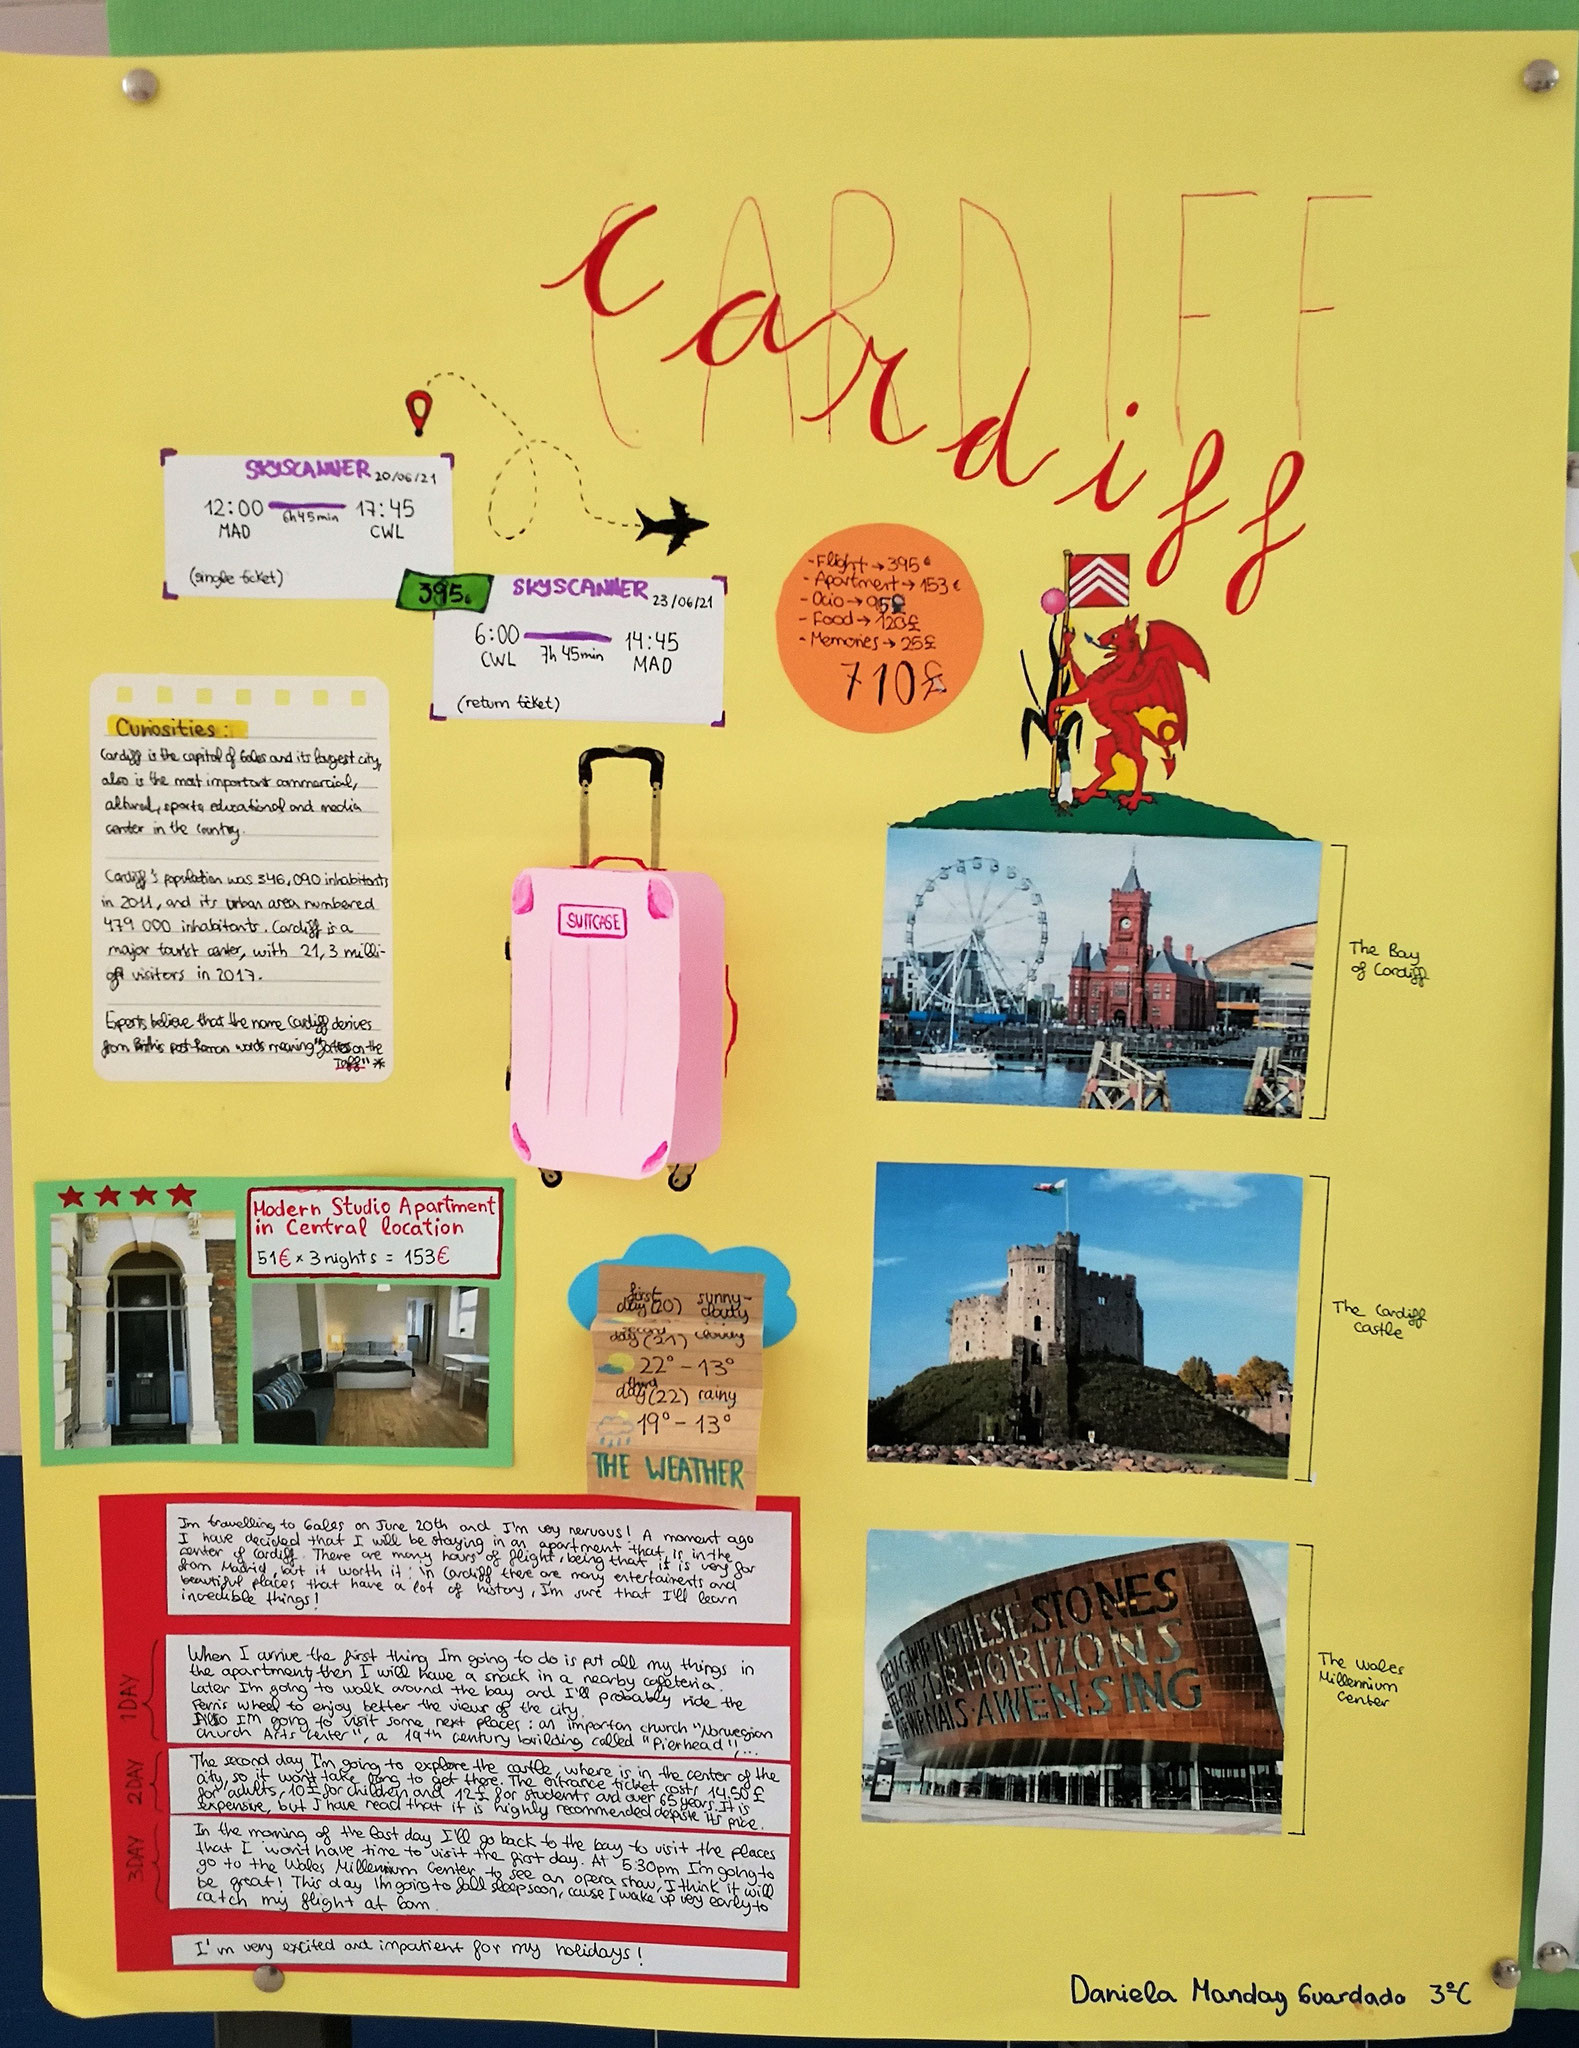 CARDIFF
cardiff
SKYSCANNER 20/06/21
12:00 17:45
6h45min
MAD CWL
(single ticket)
395€
SKYSCANNER 23/06/21
6:00 14:45
7h 45min
CWL MAD
(return ticket)
-Flight → 395€
-Apartment → 153€
-Ocio →
-Food → 120£
-Memories → 25£
710£
Curiosities:
Cardiff is the capital of Gales and its largest city,
also is the most important commercial,
cultural, sports, educational and media
center in the country.
Cardiff's population was 346,090 inhabitants
in 2011, and its urban area numbered
479 000 inhabitants. Cardiff is a
major tourist center, with 21,3 milli-
of visitors in 2017.
Experts believe that the name Cardiff derives
from post-Roman words meaning on the
Taff" *
SUITCASE
The Bay
of Cardiff
Modern Studio Apartment
in Central location
51€ x 3 nights = 153€
first
day (20) sunny-
cloudy
day (21) cloudy
22° - 13°
third
day (22) rainy
19° - 13°
THE WEATHER
The Cardiff
Castle
Im travelling to Gales on June 20th and I'm very nervous! A moment ago
I have decided that I will be staying in an apartment that is in the
center of Cardiff. There are many hours of flight, being that it is very far
from Madrid, but it worth it: in Cardiff there are many entertaiments and
beautiful places that have a lot of history, I'm sure that I'll learn
incredible things!
1DAY
When I arrive the first thing Im going to do is put all my things in
the apartment, then I will have a snack in a nearby cafeteria.
Later I'm going to walk around the bay and I'll probably ride the
Ferris wheel to enjoy better the views of the city.
Also I'm going to visit some next places: an importan church "Norwegian
church Arts Center", a 19th century building called "Pierhead",...
2DAY
The second day I'm going to explore the castle, where is in the center of the
city, so it won't take long to get there. The entrance ticket costs 14,50£
for adults, 10£ for children and 12£ for students and over 65 years. It is
expensive, but I have read that it is highly recommended despite its price.
3DAY
In the morning of the last day I'll go back to the bay to visit the places
that I won't have time to visit the first day. At 5:30pm I'm going to
go to the Wales Millennium Center to see an opera show, I think it will
be great! This day I'm going to fall sleep soon, cause I wake up very early to
catch my flight at 6am.
I'm very excited and impatient for my holidays!
IN THESE STONES
HORIZONS
SING
AWEN
The Wales
Millennium
Center
Daniela Manday Guardado 3ºC